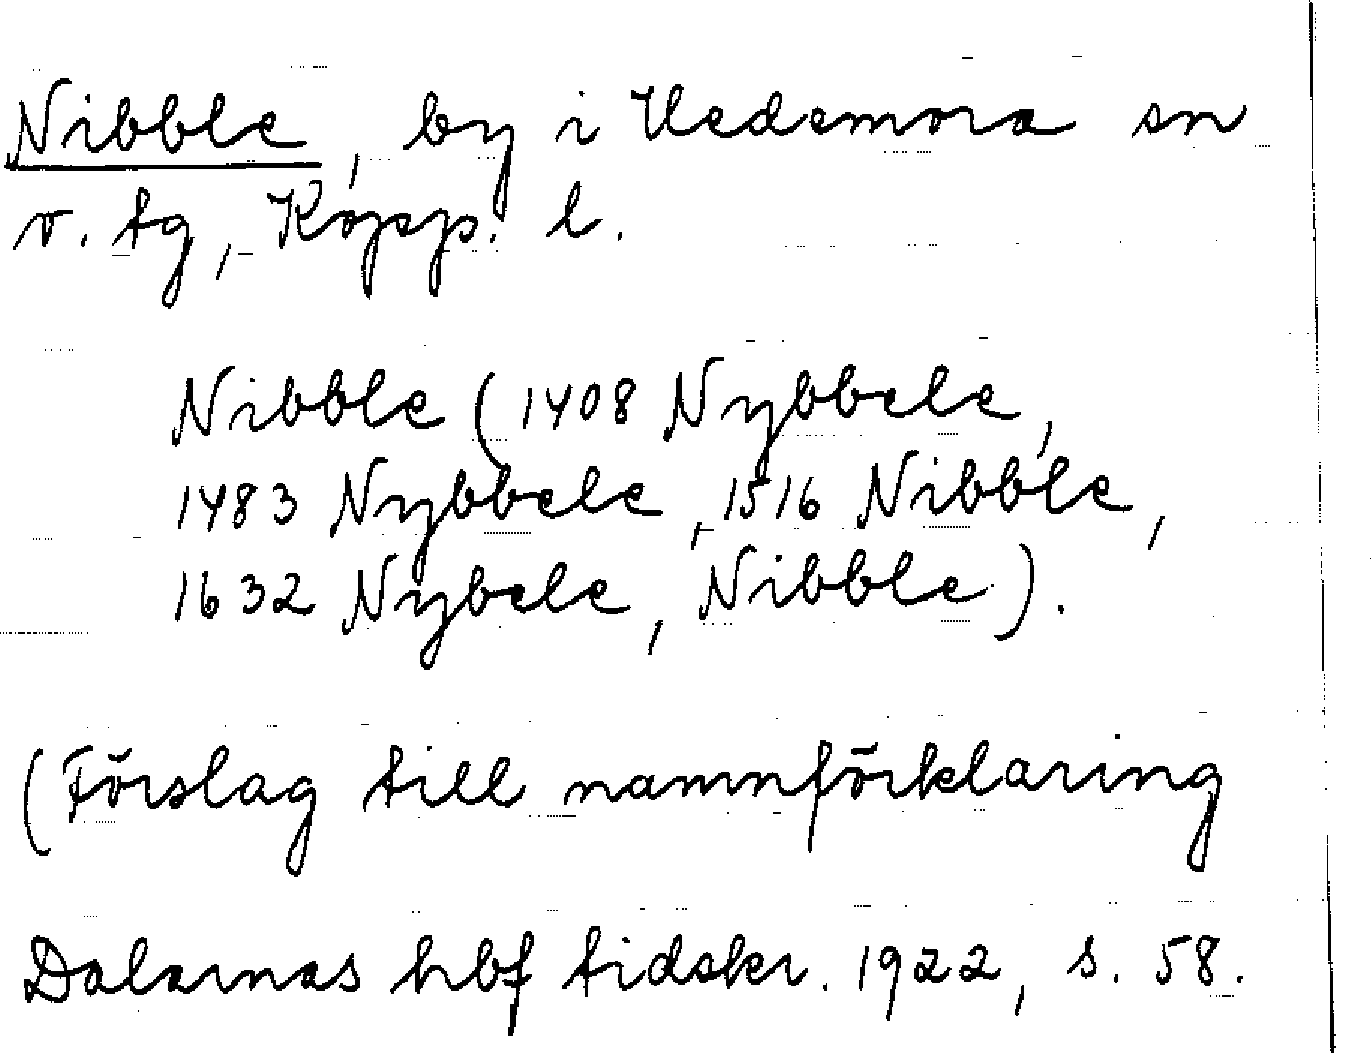 Nibble, by i Hedemora sn
v. tg, Kopp. l.
Nibble (1408 Nybbele,
1483 Nybbele, 1516 Nibble,
1632 Nybele, Nibble).
(Förslag till namnförklaring
Dalarnas hbf tidskr. 1922, s. 58.